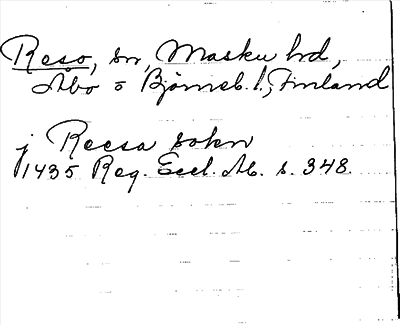 Reso, sn, Masku hd,
Åbo o Björneb. l., Finland
j Reesa sokn
1435 Reg. Eccl. Ab. s. 348.